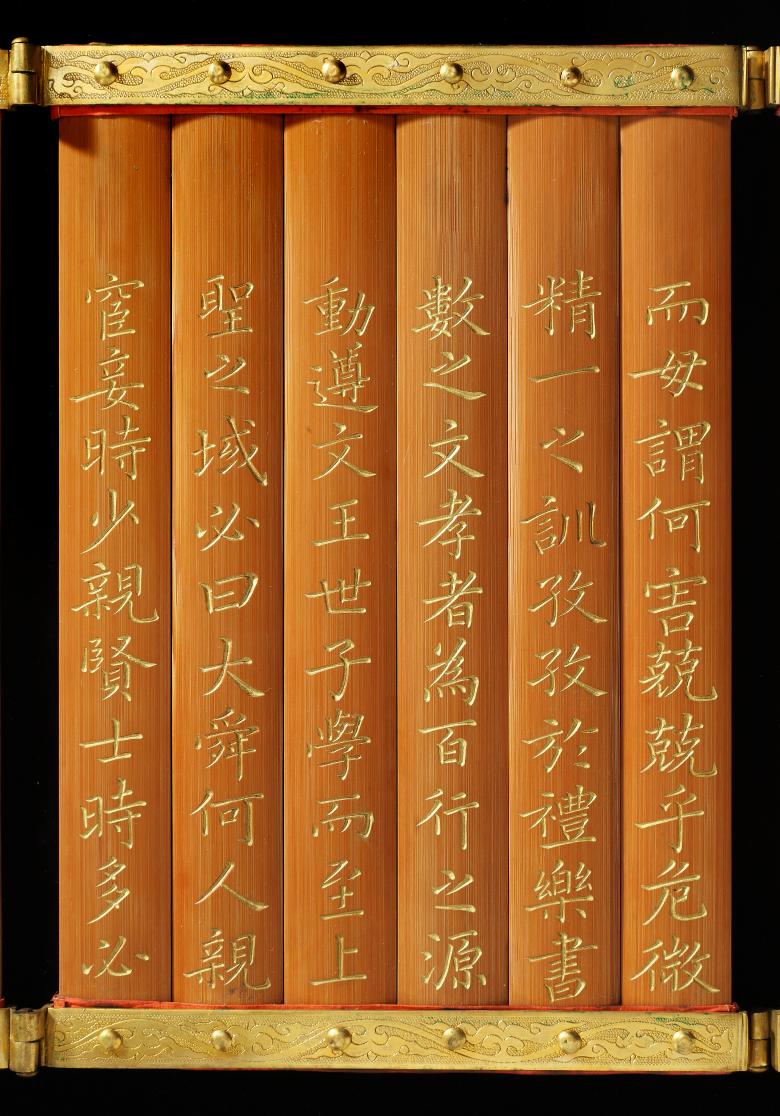 而毋謂何害兢兢乎危微
精一之訓孜孜於禮樂書
數之文孝者為百行之源
動遵文王世子學而至上
聖之域必曰大舜何人親
宦妾時少親賢士時多必